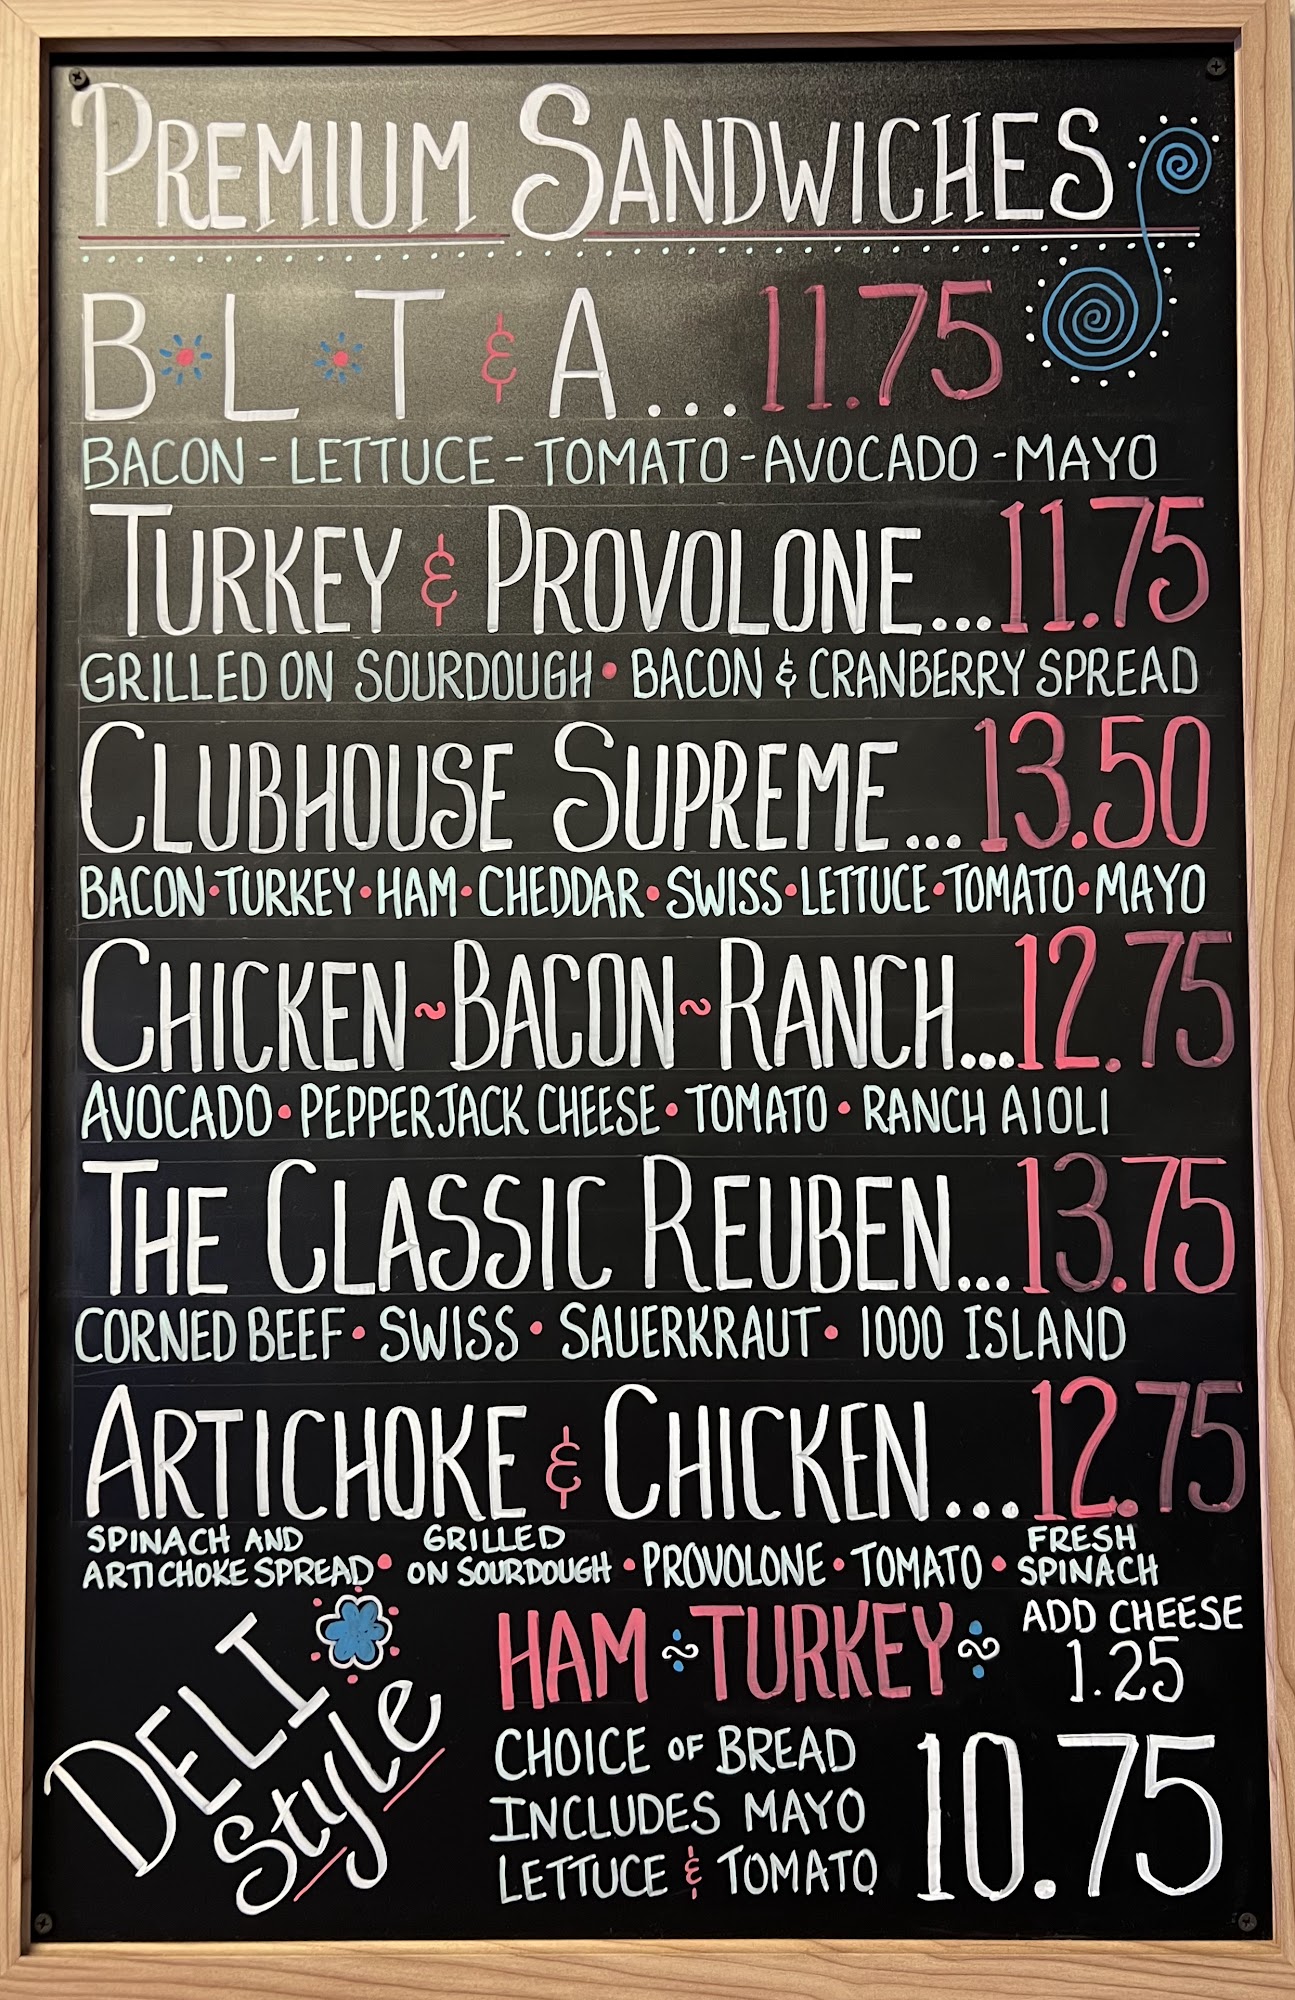 PREMIUM SANDWICHES
B L T & A ... 11.75
BACON - LETTUCE - TOMATO - AVOCADO - MAYO
TURKEY & PROVOLONE... 11.75
GRILLED ON SOURDOUGH • BACON & CRANBERRY SPREAD
CLUBHOUSE SUPREME... 13.50
BACON • TURKEY • HAM • CHEDDAR • SWISS • LETTUCE • TOMATO • MAYO
CHICKEN ~ BACON ~ RANCH... 12.75
AVOCADO • PEPPERJACK CHEESE • TOMATO • RANCH AIOLI
THE CLASSIC REUBEN... 13.75
CORNED BEEF • SWISS • SAUERKRAUT • 1000 ISLAND
ARTICHOKE & CHICKEN... 12.75
SPINACH AND
ARTICHOKE SPREAD •
GRILLED
ON SOURDOUGH • PROVOLONE • TOMATO •
FRESH
SPINACH
DELI
Style
HAM ~ TURKEY ~
ADD CHEESE
1.25
CHOICE OF BREAD
INCLUDES MAYO
LETTUCE & TOMATO
10.75